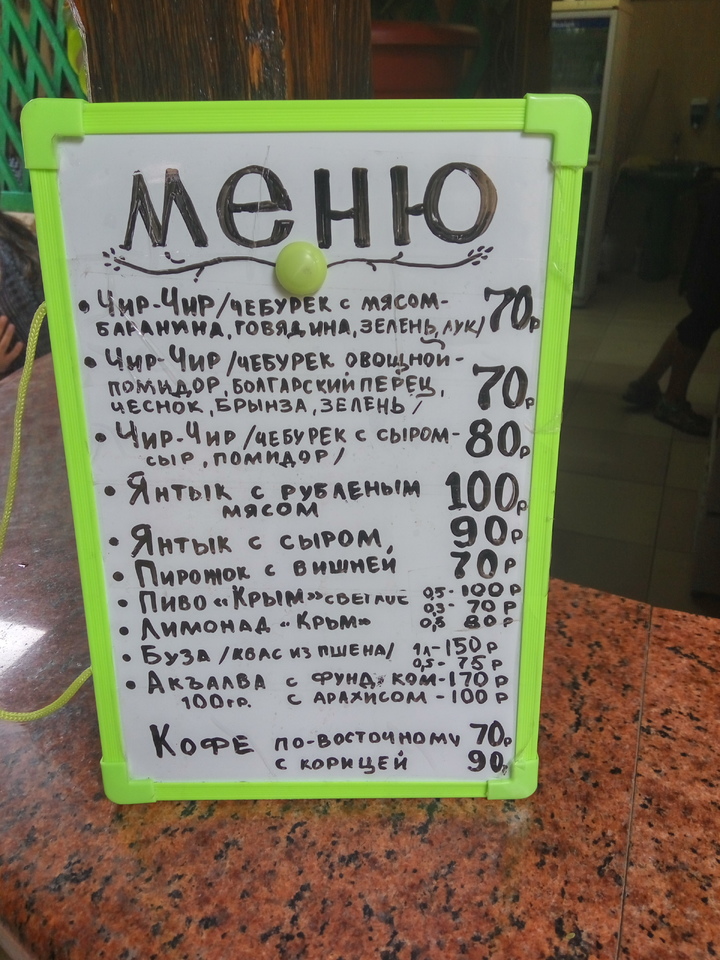 Меню
• Чир-Чир/чебурек с мясом- 70р
баранина, говядина, зелень, лук/
• Чир-Чир/чебурек овощной-
помидор, болгарский перец, 70р
чеснок, брынза, зелень/
• Чир-Чир/чебурек с сыром- 80р
сыр, помидор/
• Янтык с рубленым 100р
мясом
• Янтык с сыром, 90р
• Пирожок с вишней 70р
• Пиво «Крым» светлое 0,5-100р
0,3-70р
• Лимонад «Крым» 0,5 80р
• Буза/квас из пшена/ 1л-150р
0,5-75р
• Акъалва с фундуком-170р
100гр. с арахисом-100р
Кофе по-восточному 70р
с корицей 90р